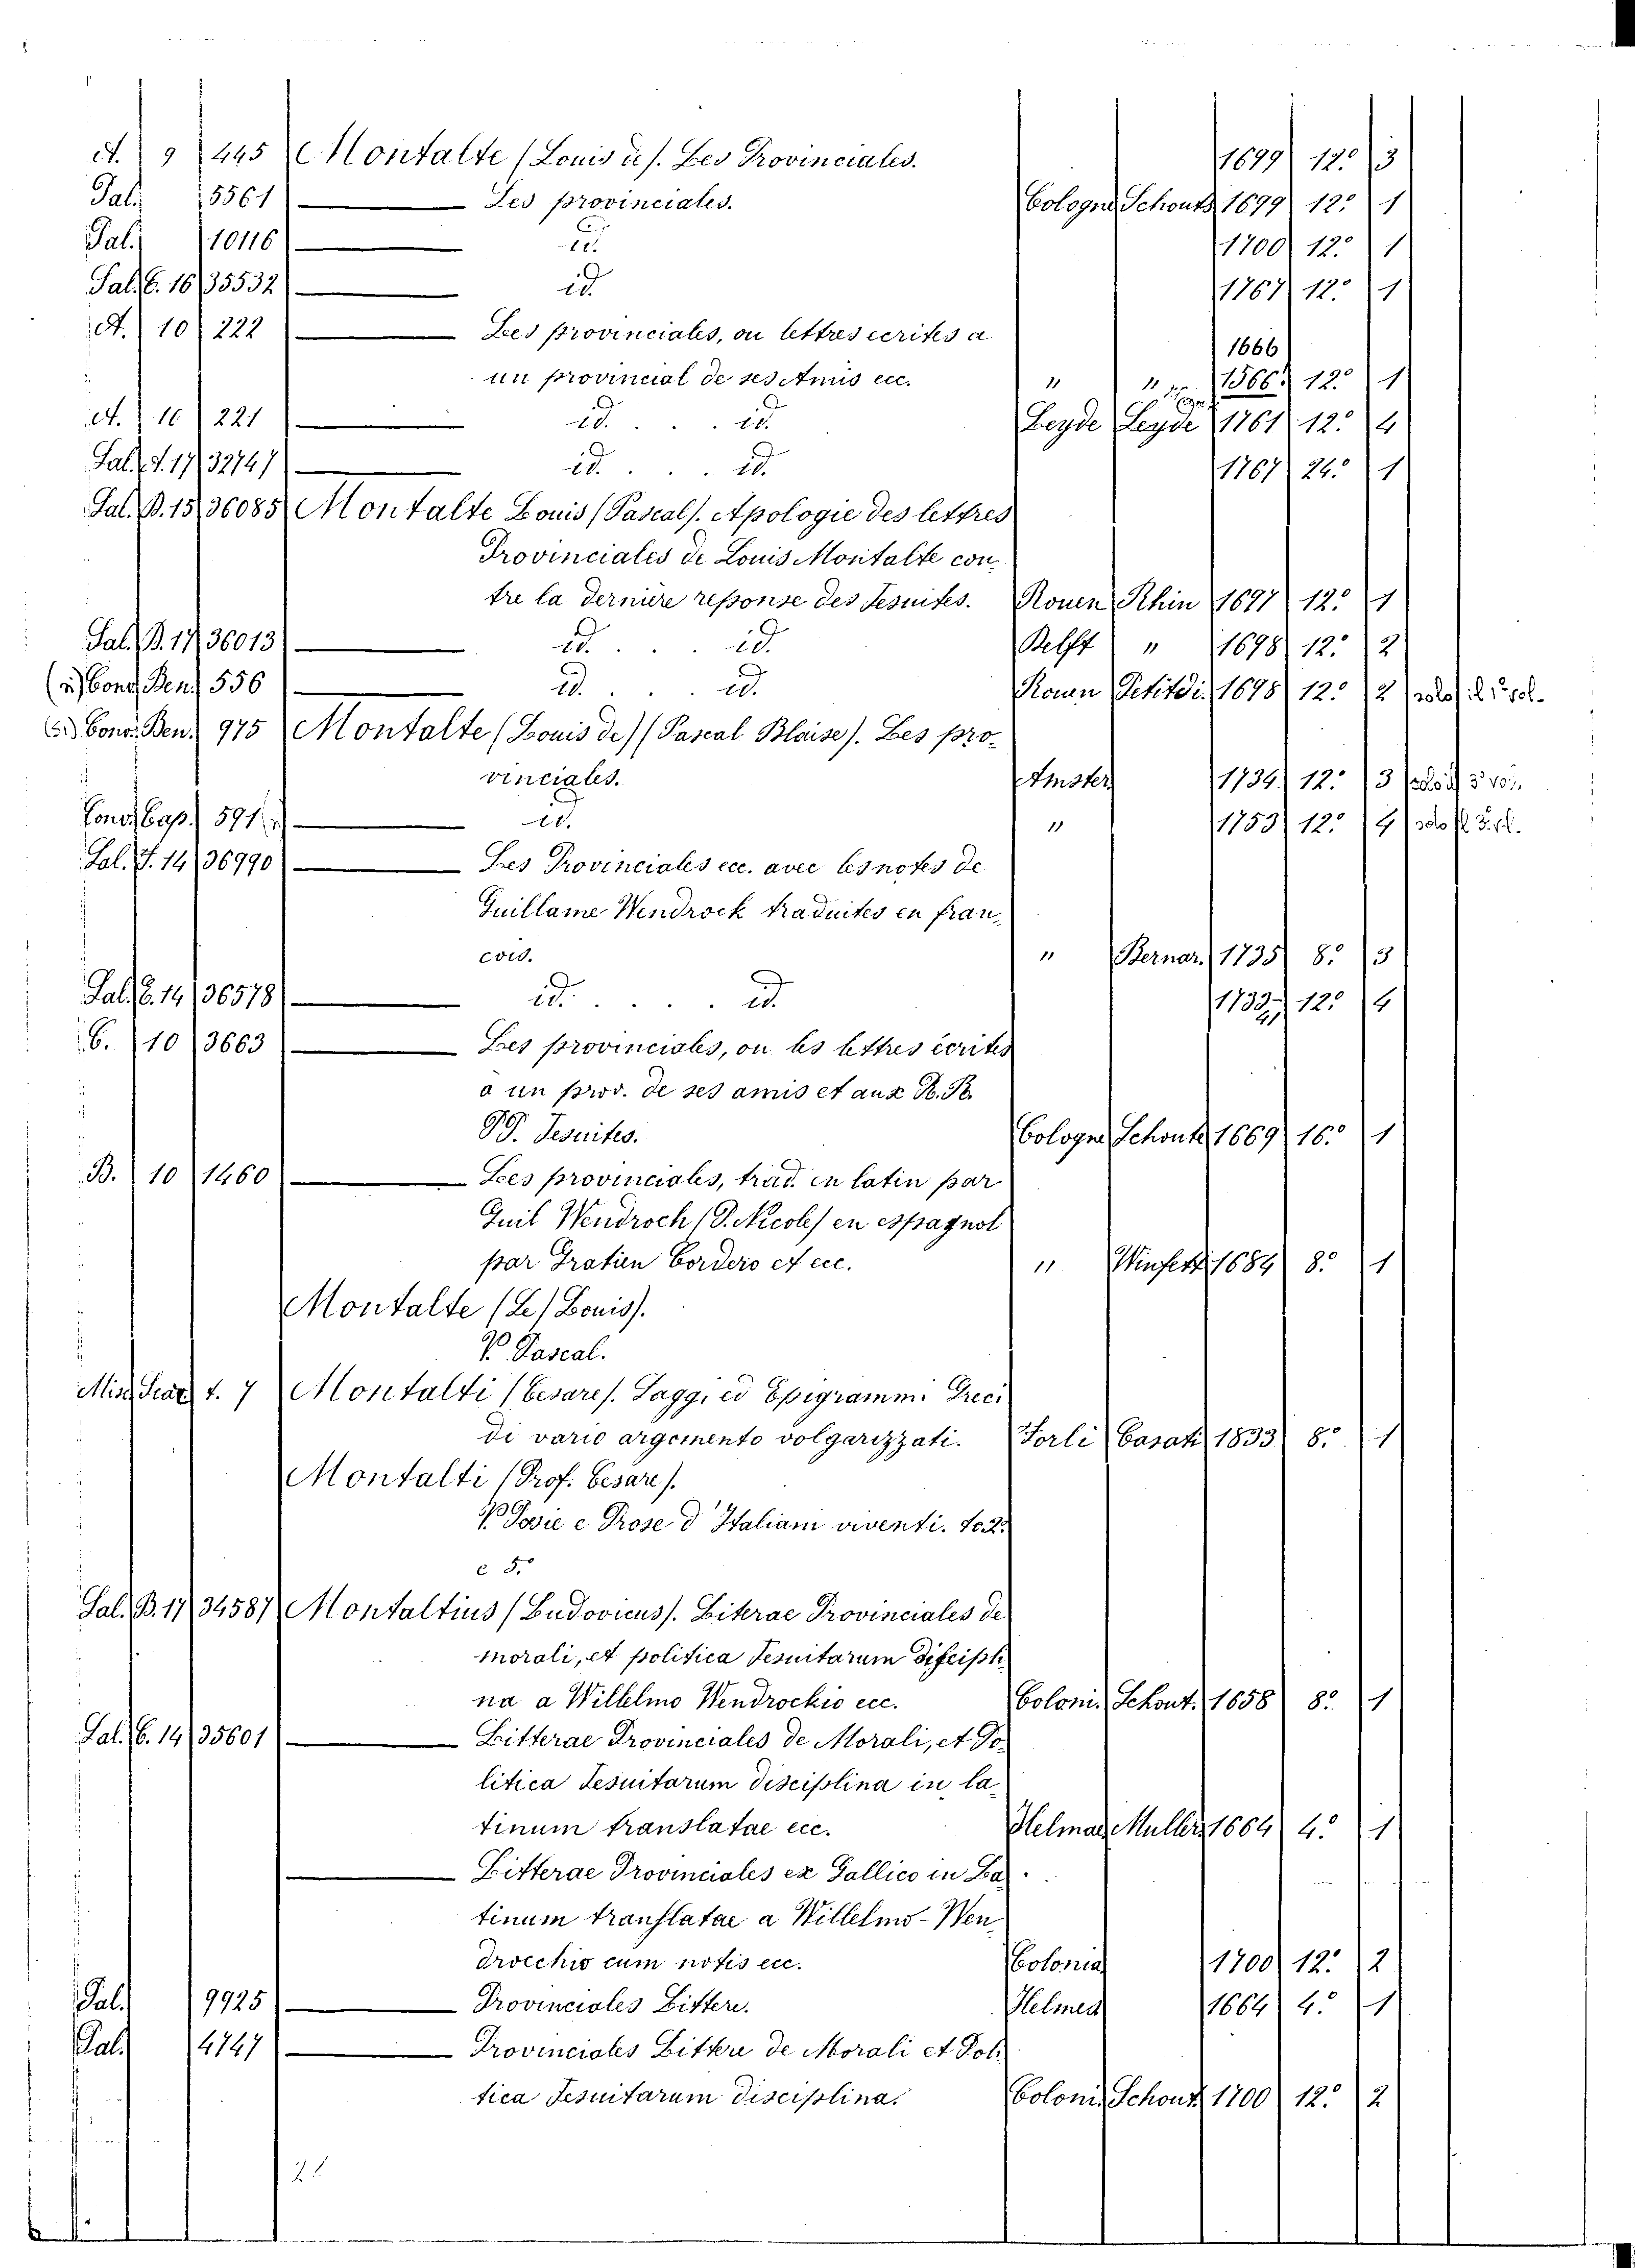 A. 9 445 Montalte (Louis de). Les Provinciales. 1699 12.° 3
Sal. 5561 Les provinciales. Cologne Schoute 1699 12.° 1
Sal. 10116 id. 1700 12.° 1
Sal. C. 16 35532 id. 1767 12.° 1
A. 10 222 Les provinciales, ou lettres ecrites a 1666
un provincial de ses Amis ecc. " " 1566. 12.° 1
A. 10 221 id. . . . id. Leyde Leyde 1761 12.° 4
Sal. A. 17 32747 id. . . . id. 1767 24.° 1
Sal. B. 15 36085 Montalte Louis (Pascal). Apologie des lettres
Provinciales de Louis Montalte con-
tre la derniere reponse des Jesuites. Rouen Rhin 1697 12.° 1
Sal. B. 17 36013 id. . . . id. Delft " 1698 12.° 2
Conv. Ben. 556 id. . . . id. Rouen Petitdi. 1698 12.° 2 solo il 1° vol.
Conv. Ben. 975 Montalte (Louis de) (Pascal Blaise). Les pro-
vinciales. Amster. 1734 12.° 3 3° vol.
Conv. Cap. 591 id. " 1753 12.° 4 solo
Sal. F. 14 36990 Les Provinciales ecc. avec les notes de
Guillame Wendrock traduites en fran-
cois. " Bernar. 1735 8.° 3
Sal. C. 14 36578 id. . . . . id. 1733 12.° 4
C. 10 3663 Les provinciales, ou les lettres ecrites
a un prov. de ses amis et aux R. R.
PP. Jesuites. Cologne Schoute 1669 16.° 1
B. 10 1460 Les provinciales, trad. en latin par
Guil Wendroch (P. Nicole) en espagnol
par Gratien Cordero et ecc. " Winfert 1684 8.° 1
Montalte (de) Louis).
V. Pascal.
Misc. t. 7 Montalti (Cesare). Saggi ed Epigrammi Greci
di vario argomento volgarizzati. Forli Casati 1833 8.° 1
Montalti (Prof. Cesare).
V. Poesie e Prose d'Italiani viventi. to 2.°
e 5.°
Sal. B. 17 34587 Montaltius (Ludovicus). Literae Provinciales de
morali, et politica Jesuitarum discipli-
na a Willelmo Wendrockio ecc. Coloni. Schout. 1658 8.° 1
Sal. C. 14 35601 Litterae Provinciales de Morali, et Po-
litica Jesuitarum disciplina in la-
tinum translatae ecc. Helmae. Muller 1664 4.° 1
Litterae Provinciales ex Gallico in La-
tinum translatae a Willelmo-Wen-
drocchio cum notis ecc. Colonia 1700 12.° 2
Sal. 9925 Provinciales Littere. Helmea 1664 4.° 1
Sal. 4747 Provinciales Littere de Morali et Poli-
tica Jesuitarum disciplina. Coloni. Schout 1700 12.° 2